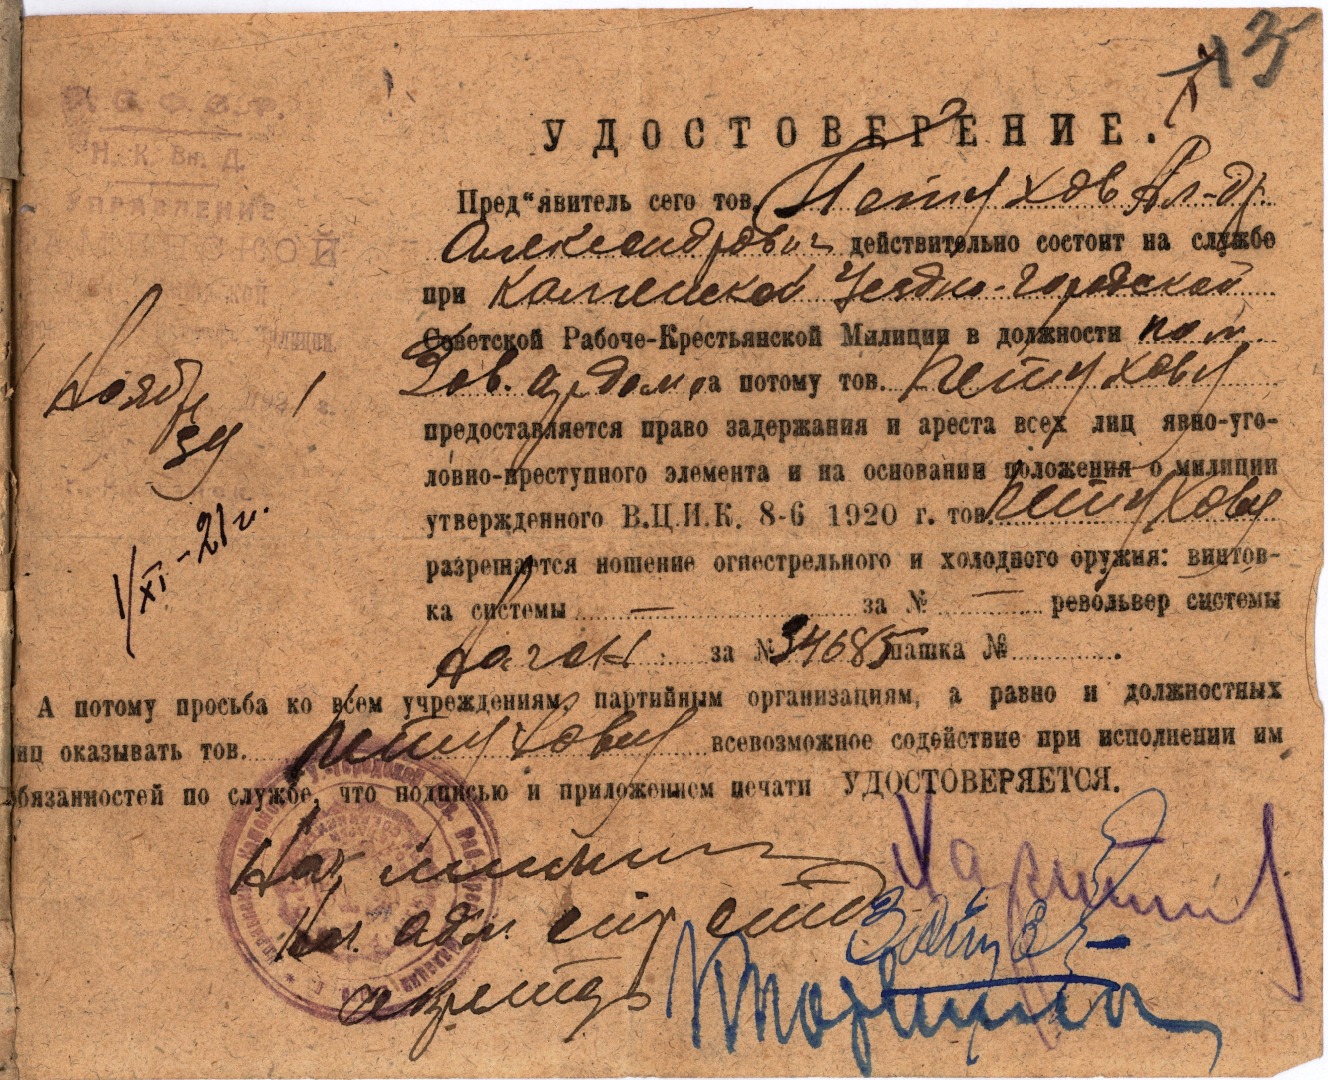 13
Р. С. Ф. С. Р.
Н. К. Вн. Д.
УПРАВЛЕНИЕ
Ноября 1 192 г.
39
1/XI-21 г.
УДОСТОВЕРЕНИЕ.
Пред“явитель сего тов. Петухов Ал-др.
Александрович действительно состоит на службе
при Каменской Уездно-городской
Советской Рабоче-Крестьянской Милиции в должности пом.
Зав. ардома потому тов. Петухову
предоставляется право задержания и ареста всех лиц явно-уго-
ловно-преступного элемента и на основании положения о милиции
утвержденного В.Ц.И.К. 8-6 1920 г. тов. Петухову
разрешается ношение огнестрельного и холодного оружия: винтов-
ка системы — за № — револьвер системы
Наган за № 34685 шашка № .
А потому просьба ко всем учреждениям, партийным организациям, а равно и должностных
лиц оказывать тов. Петухову всевозможное содействие при исполнении им
обязанностей по службе, что подписью и приложением печати УДОСТОВЕРЯЕТСЯ.
Нач милиции
адм.
секретарь